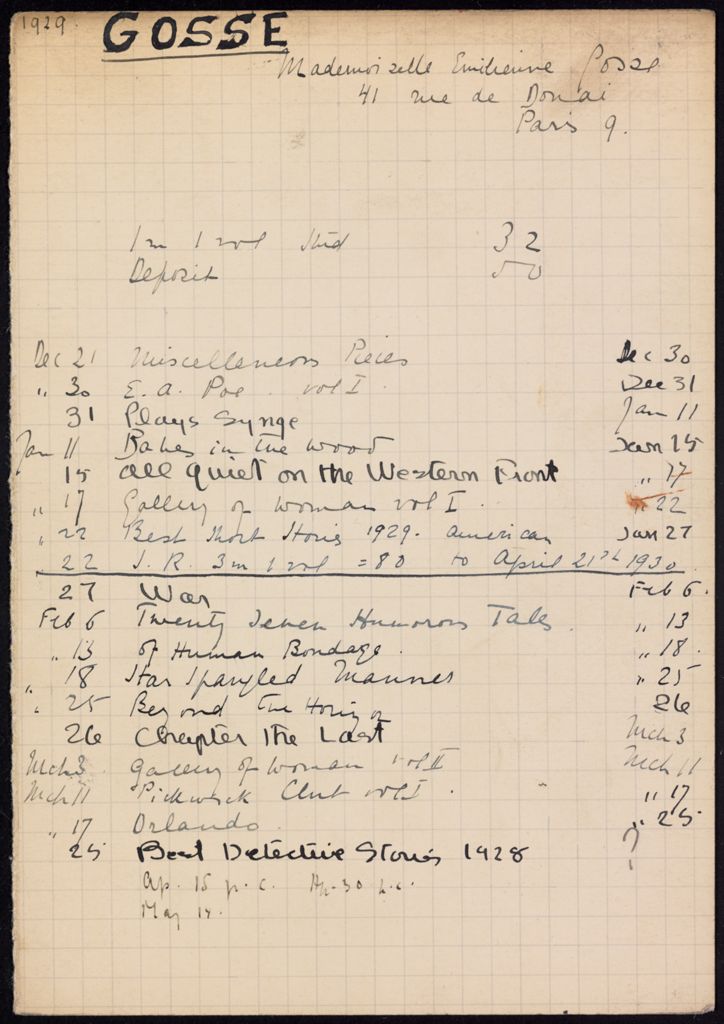 1929.
GOSSE
Mademoiselle Emilienne Gosse
41 rue de Douai
Paris 9.
1 m 1 vol Stud 32
Deposit 50
Dec 21 Miscellaneous Pieces Dec 30
" 30 E. A. Poe. vol I. Dec 31
31 Plays Synge Jan 11
Jan 11 Babes in the wood Jan 15
15 All Quiet on the Western Front " 17
" 17 Gallery of woman vol I. " 22
" 22 Best Short Stories 1929. American Jan 27
22 S. R. 3 m 1 vol = 80 to April 21st 1930
27 War Feb 6.
Feb 6 Twenty Seven Humorous Tales. " 13
" 13 Of Human Bondage. " 18.
" 18 Star Spangled Manner " 25
" 25 Beyond the Horizon 26
26 Chapter the Last Mch 3
Mch 3 Gallery of woman vol II Mch 11
Mch 11 Pickwick Club vol I. " 17
" 17 Orlando. " 25
25 Best Detective Stories 1928 ?
Ap. 15 p. c. Ap. 30 p. c.
May 14.